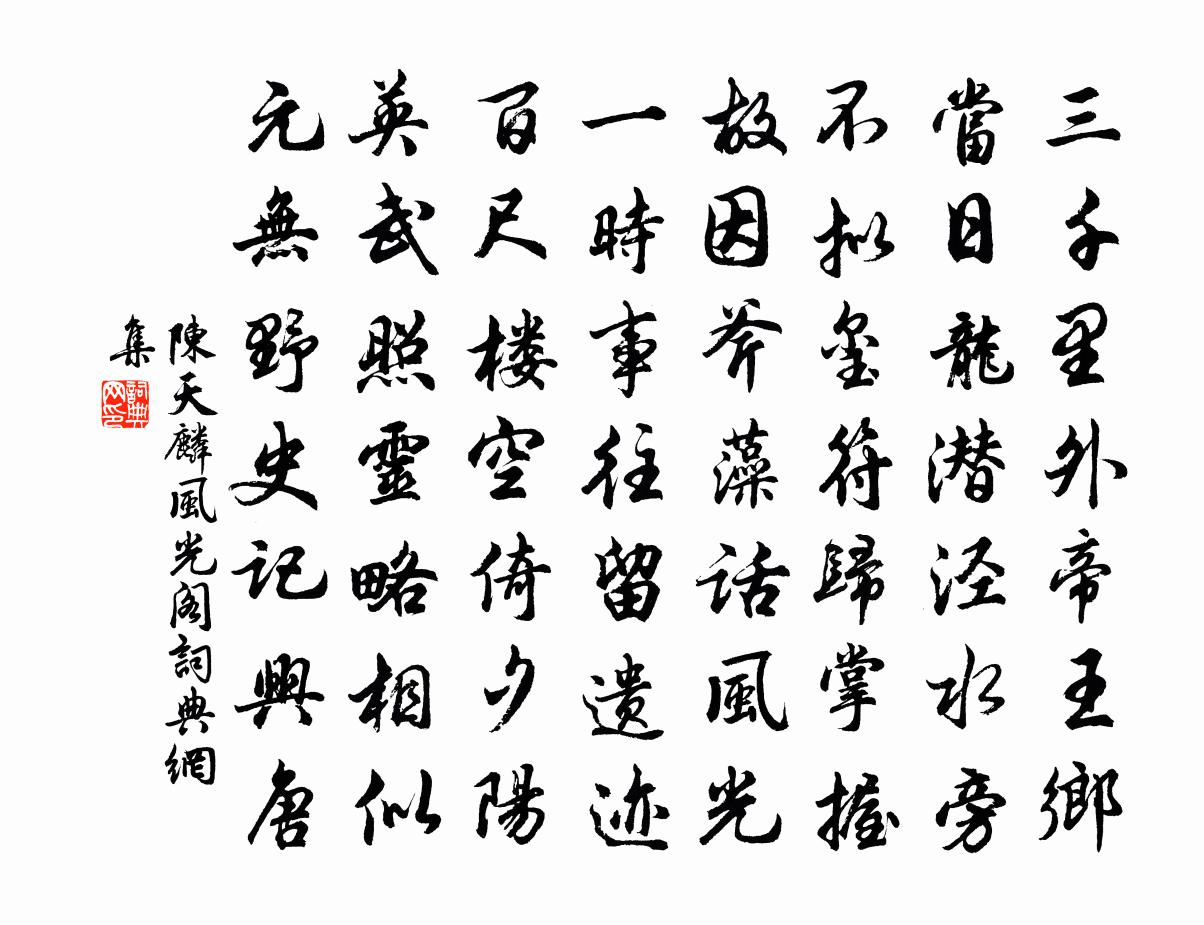 三千里外帝王鄉
當日龍潛泾水旁
不拟璽符歸掌握
故因斧藻話風光
一時事往留遗迹
百尺楼空倚夕陽
英武照靈略相似
元無野史記興唐
陳天麟風光阁詞典網
集
詞典
网印